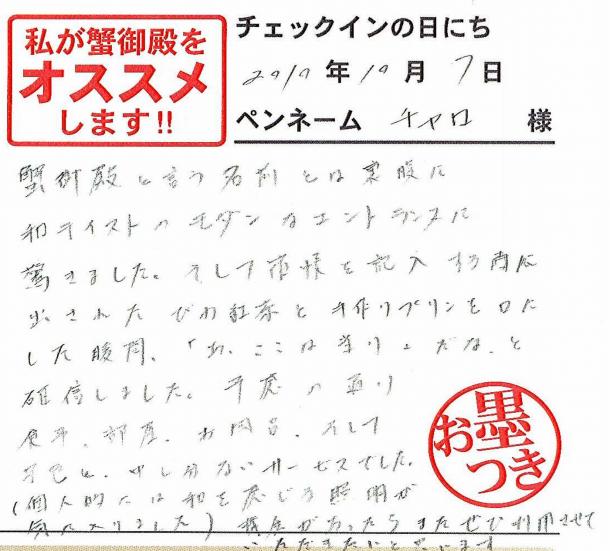 私が蟹御殿を
オススメ
します!!
チェックインの日にち
2017年10月7日
ペンネーム チャロ 様
蟹御殿と言う名前とは裏腹に
和テイストのモダンなエントランスに
驚きました。そして宿帳を記入する前に
出されたびわ紅茶と手作りプリンを口に
した瞬間、「あ、ここは当り」だな、と
確信しました。予感の通り
食事、部屋、お風呂、そして
景色と、申し分ないサービスでした。
(個人的には和を感じる照明が
気に入りました) 機会があったらまたぜひ利用させて
いただきたいと思います
墨
お つき